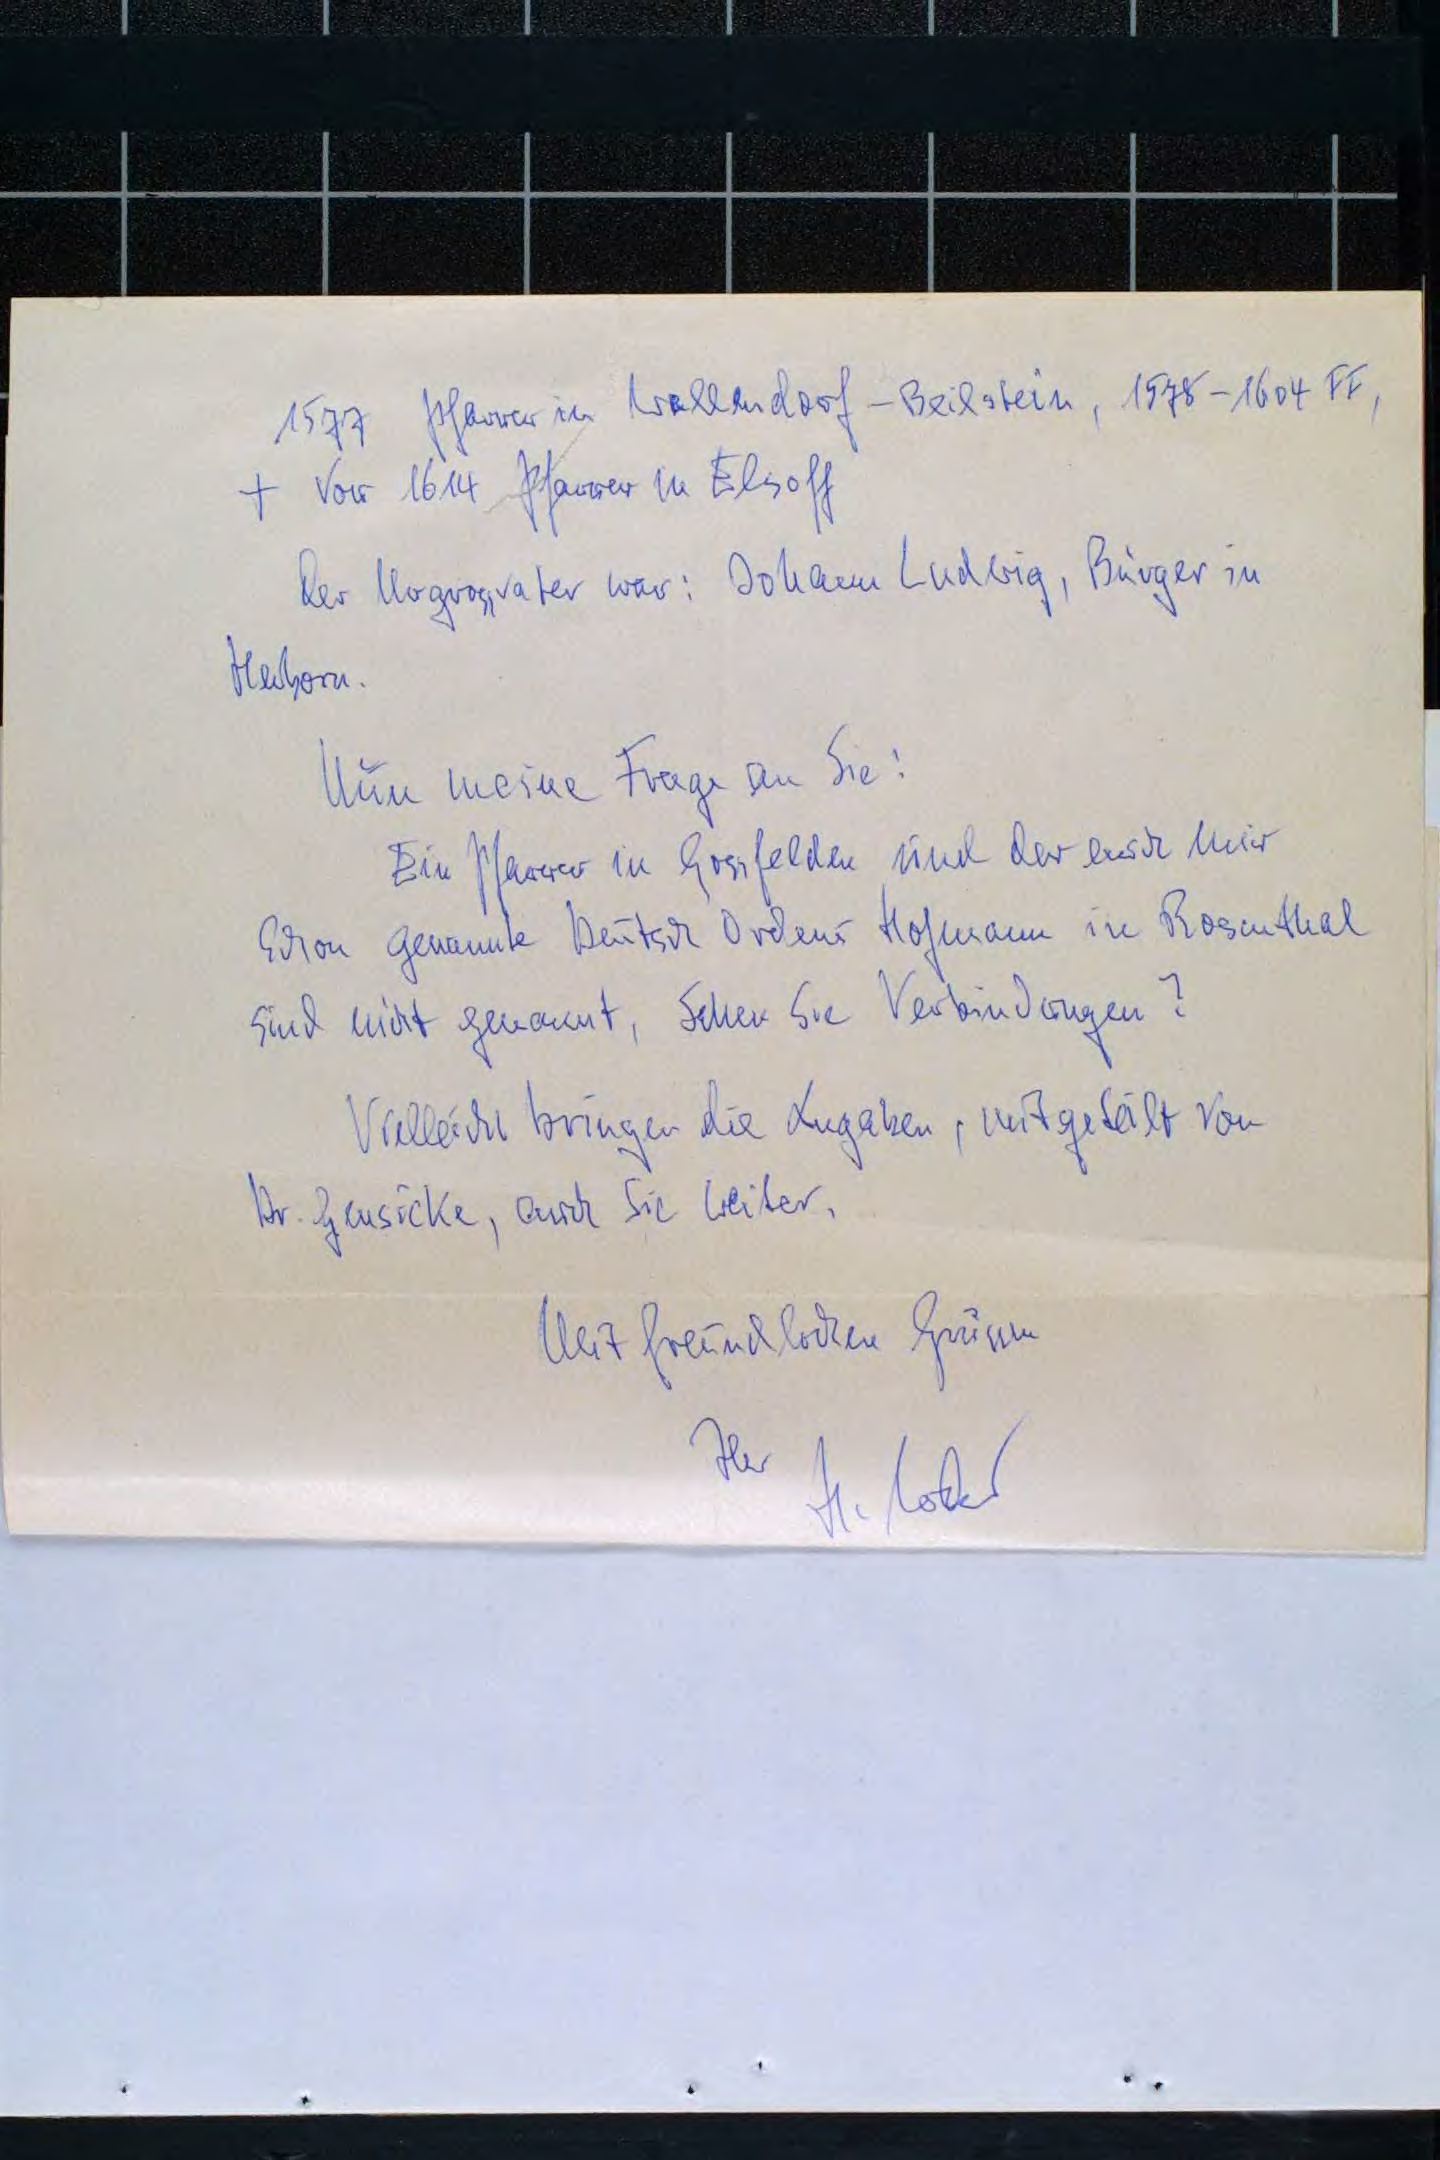 1577 Pfarrer in Wallendorf - Beilstein, 1578-1604 FF,
+ vor 1614 Pfarrer in Elsoff
Der Urgrossvater war: Johann Ludwig, Bürger in
Herborn.
Nun meine Frage an Sie:
Ein Pfarrer in Gossfelden und der auch mir
schon genannte Deutsch Ordens Hofmann in Rosenthal
sind nicht genannt, sehen Sie Verbindungen?
Vielleicht bringen die Angaben, mitgeteilt von
Dr. Gensicke, auch Sie weiter.
Mit freundlichen Grüssen
Ihr H.